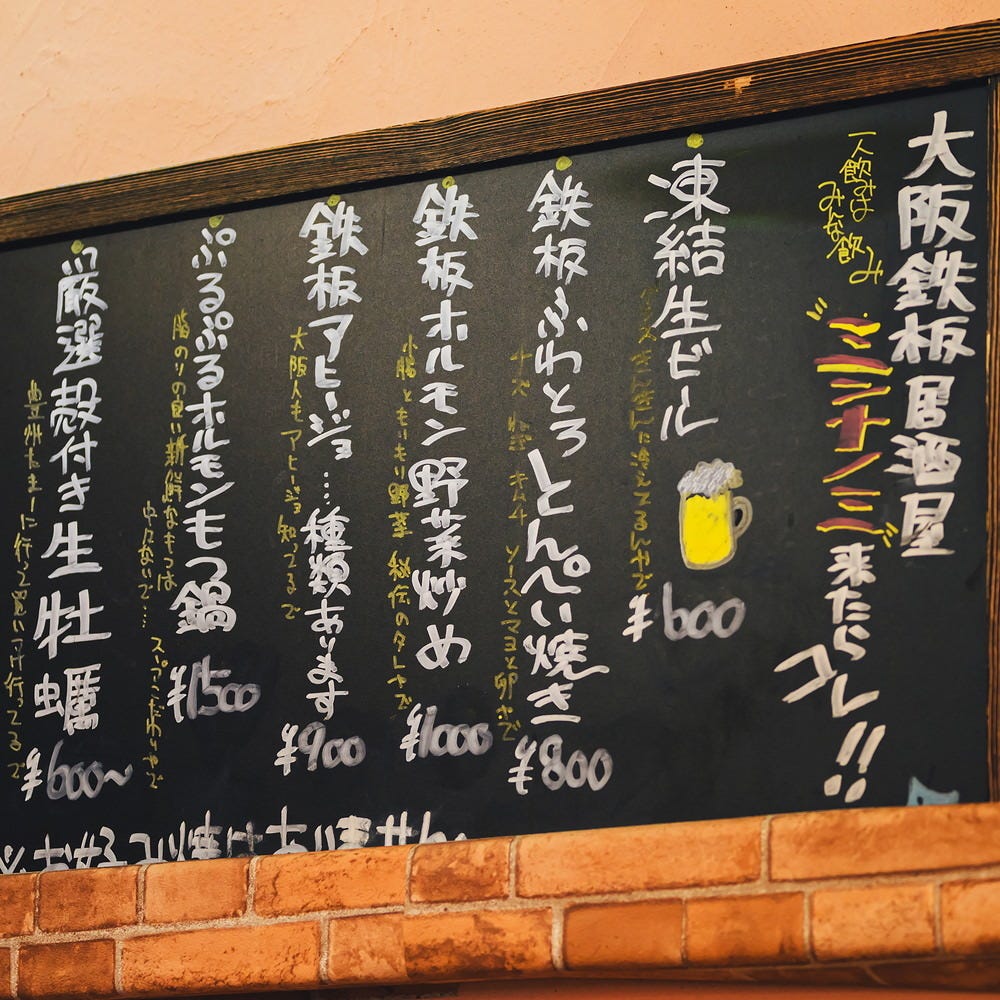 大阪鉄板居酒屋
一人飲みはみんな飲み
ミナミ来たらコレ!!
凍結生ビール ¥600
グラスきんきんに冷えてるんやで
鉄板ふわとろとんぺい焼き ¥800
チーズ キムチ ソースとマヨと卵やで
鉄板ホルモン野菜炒め ¥1000
小腸ともりもり野菜 秘伝のタレやで
鉄板アヒージョ…種類あります ¥900
大阪人もアヒージョ知ってるで
ぷるぷるホルモンもつ鍋 ¥1500
脂のりの良い新鮮なもつは
中々ないで… スープこだわりやで
厳選殻付き生牡蠣 ¥600~
に行って買いつけ行ってるで
※お好み焼はありません